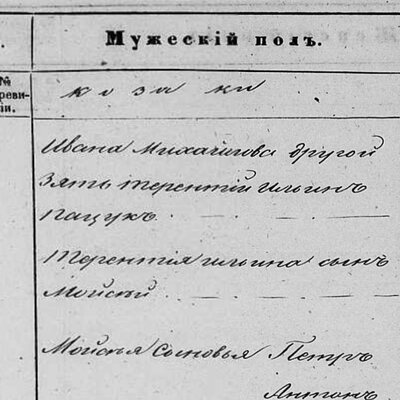 Мужескій полъ.
№
реви-
зіи.
козаки
Ивана Михайлова другой
зять терентій ильинъ
пацукъ.
терентія ильина сынъ
Мойсѣй
Мойсѣя сыновья Петръ
Антонъ